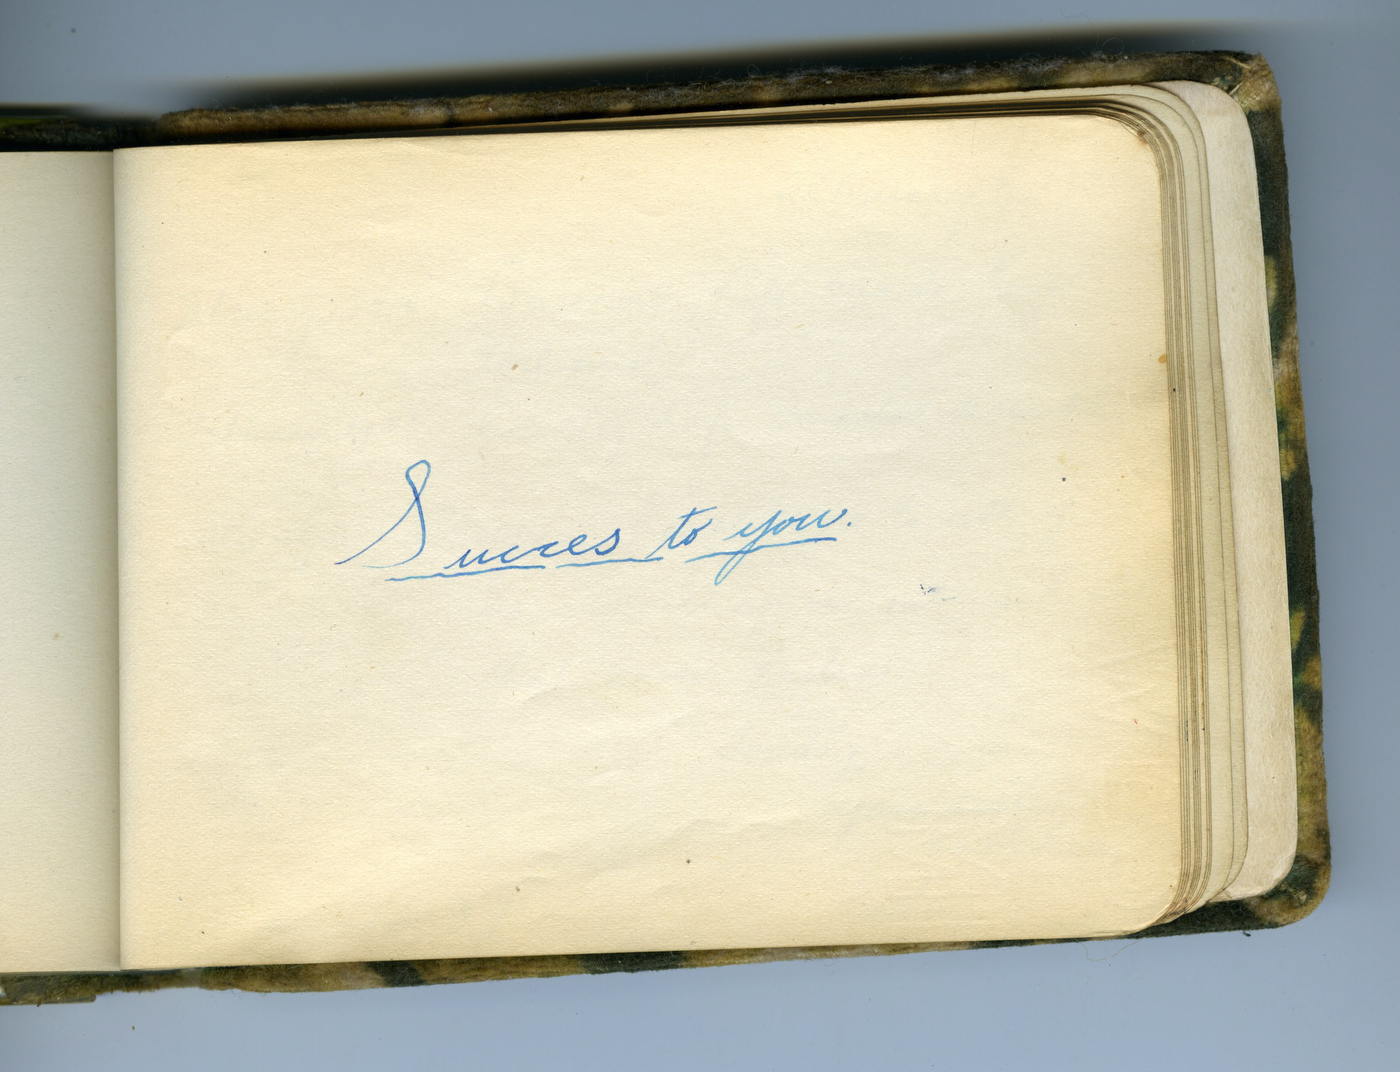 Succes to you.